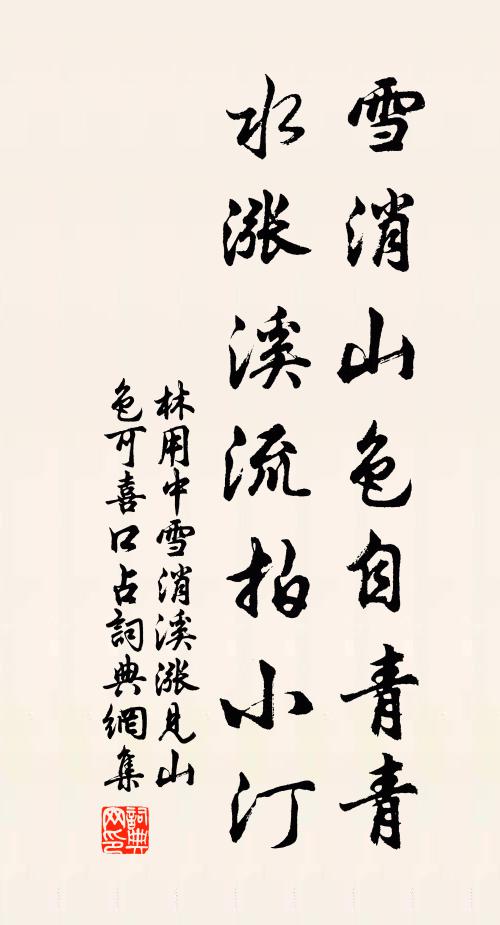 雪消山色自青青
水漲溪流拍小汀
林用中雪消溪漲見山
色可喜口占詞典網集
詞典網印